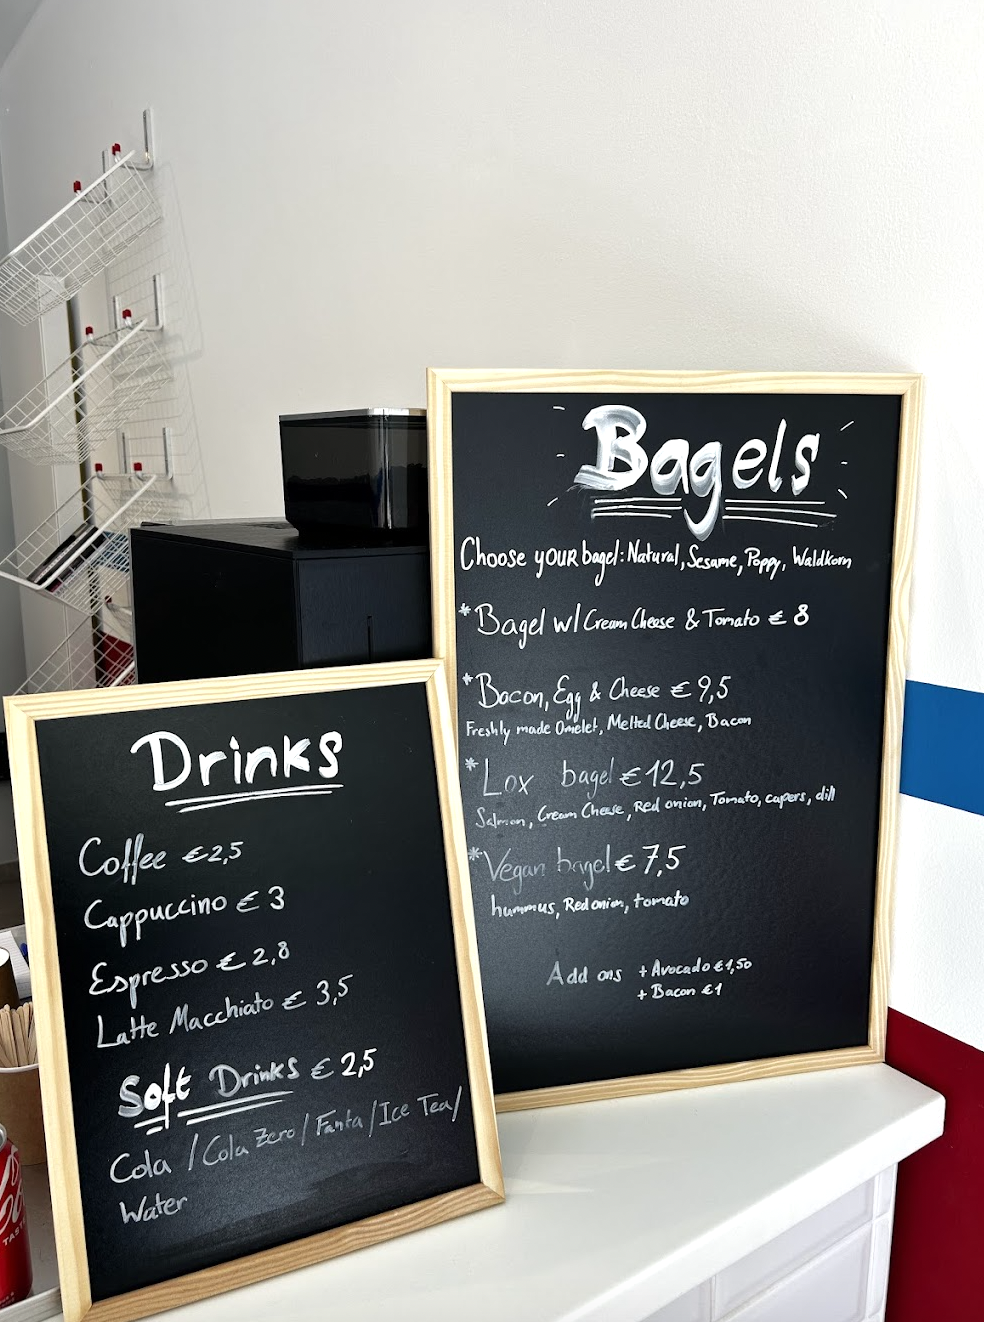 Bagels
Choose your bagel: Natural, Sesame, Poppy, Waldkorn
*Bagel w/ Cream Cheese & Tomato € 8
*Bacon, Egg & Cheese € 9,5
Freshly made Omelet, Melted Cheese, Bacon
*Lox bagel € 12,5
Salmon, Cream Cheese, Red onion, Tomato, capers, dill
*Vegan bagel € 7,5
hummus, Red onion, tomato
Add ons + Avocado € 1,50
+ Bacon €1
Drinks
Coffee €2,5
Cappuccino € 3
Espresso € 2,8
Latte Macchiato € 3,5
Soft Drinks € 2,5
Cola / Cola Zero / Fanta / Ice Tea /
Water